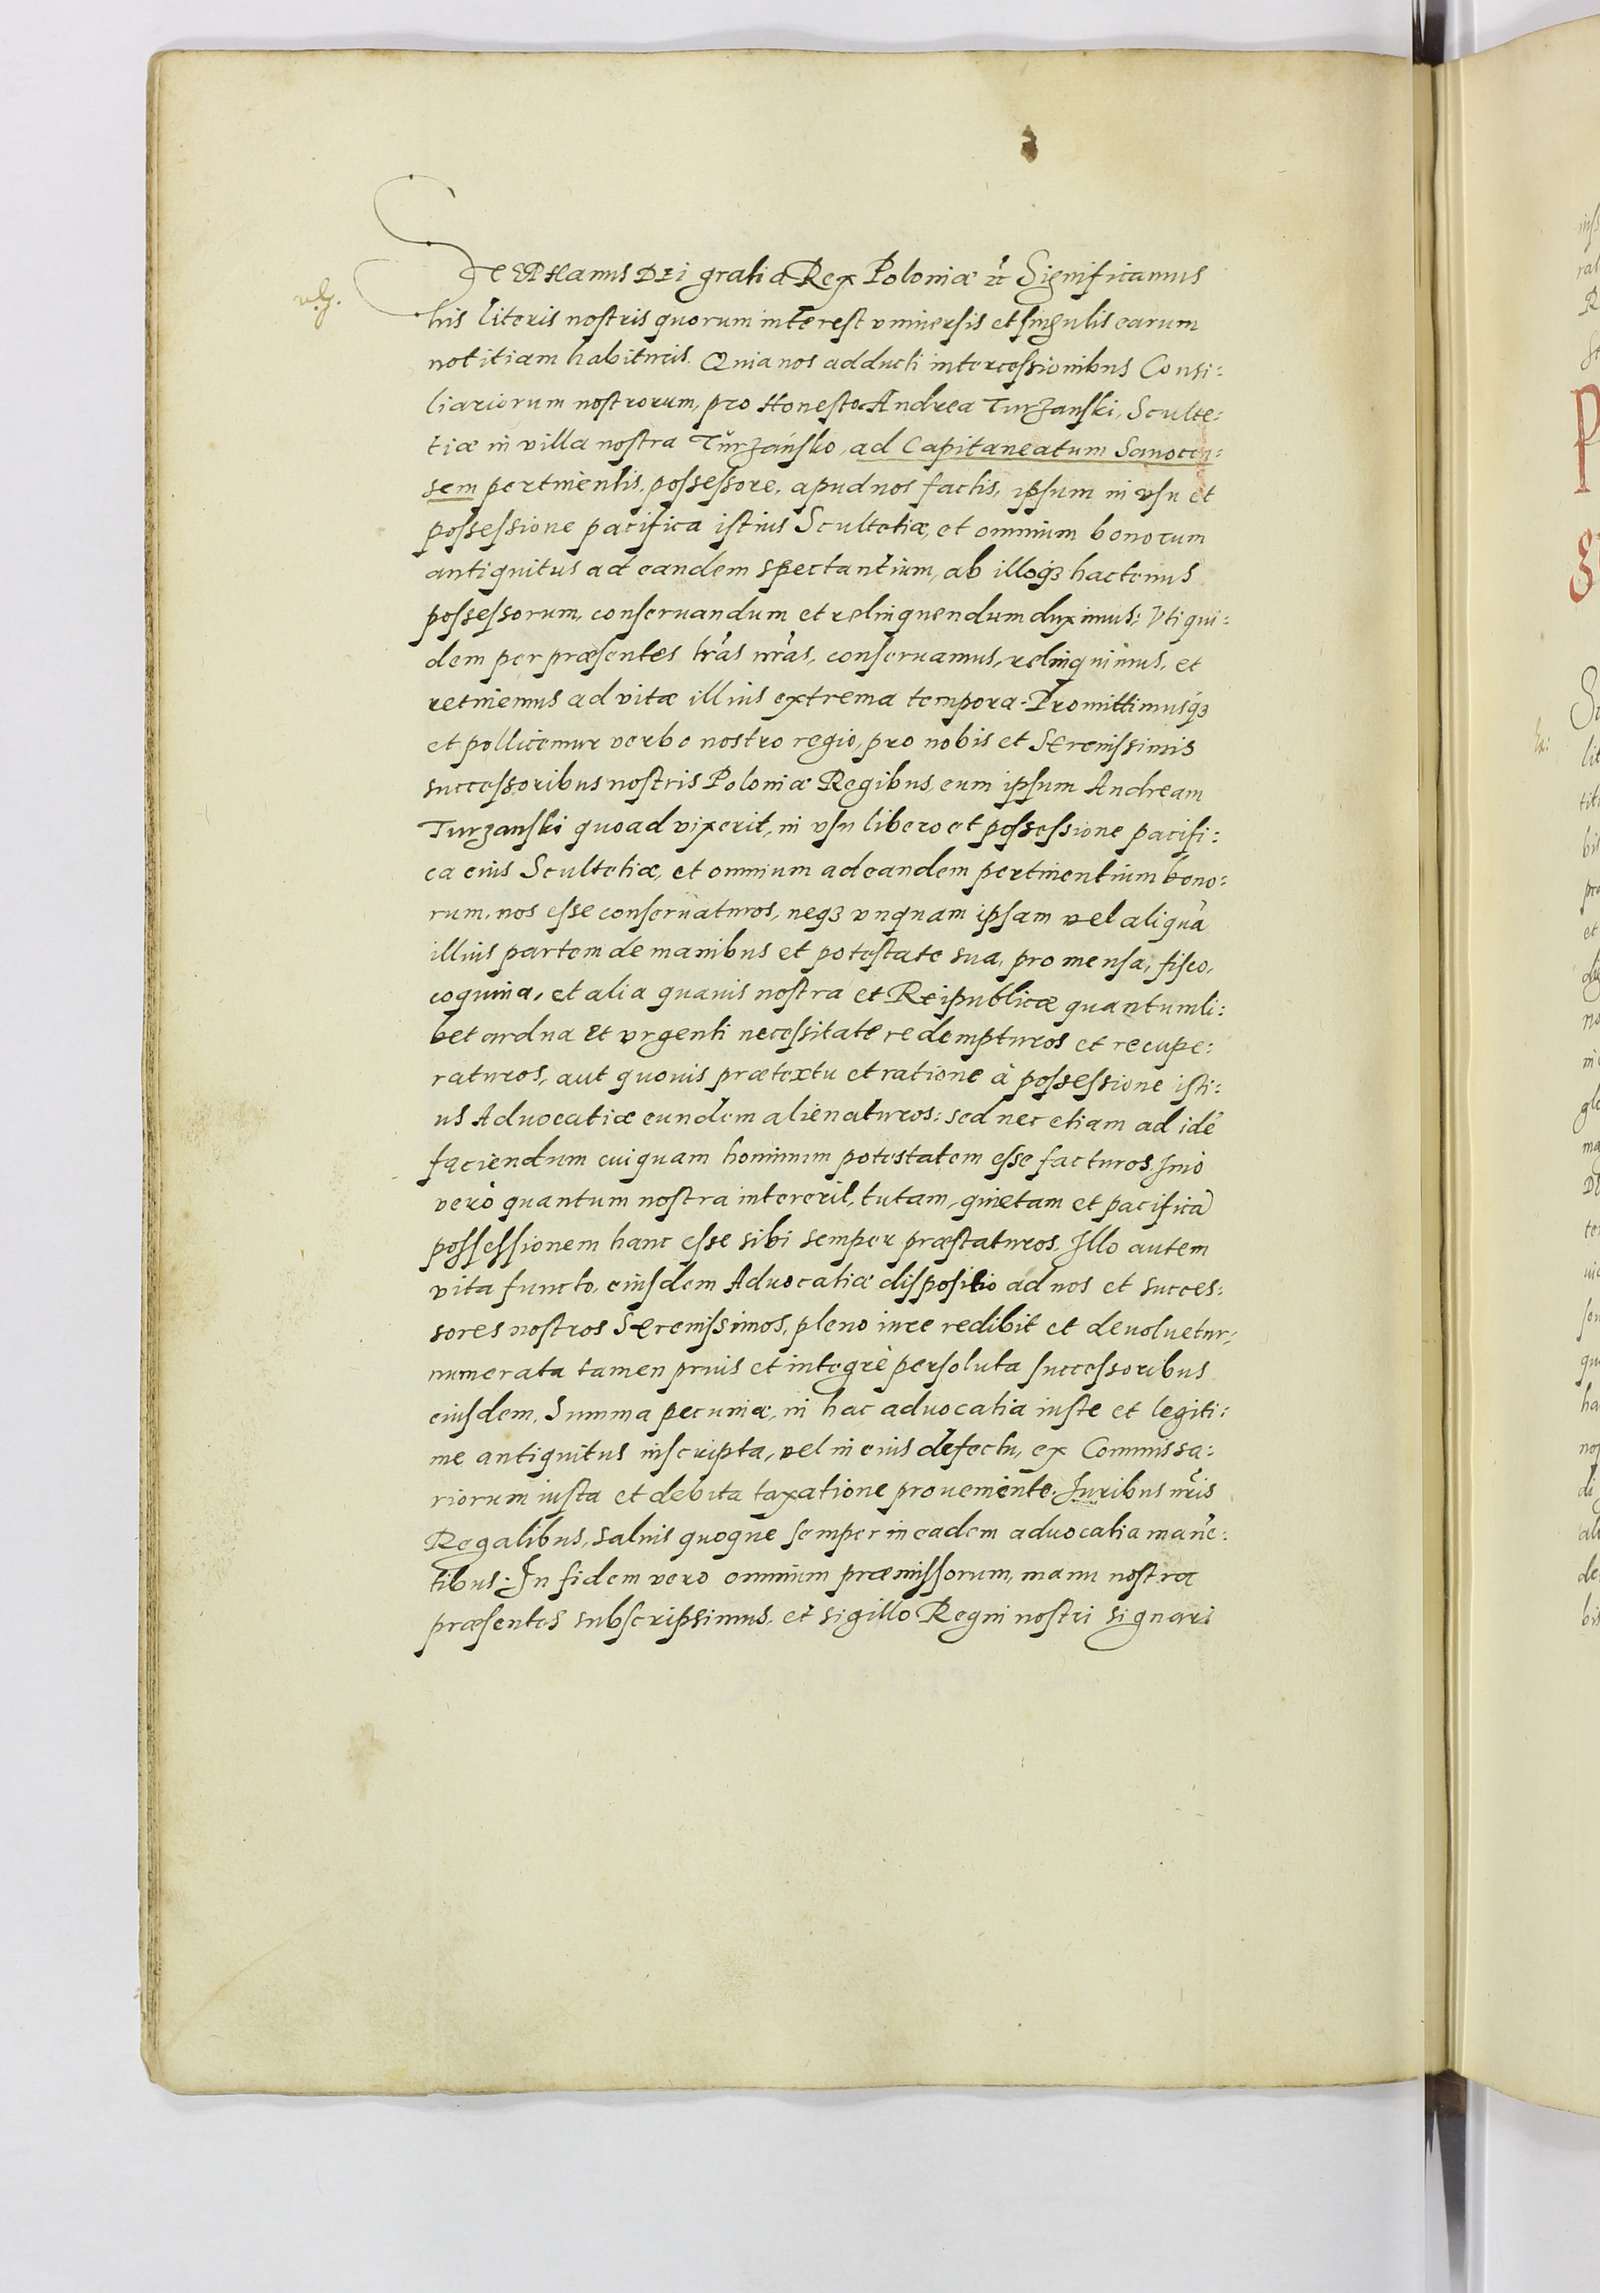 STEPHanus DEi gratia Rex Poloniæ ꝛc̃ Significamus
his literis nostris quorum interest vniuersis et singulis earum
notitiam habituris. Quia nos adducti intercessionibus Consi:
liariorum nostrorum, pro Honesto Andrea Turzanski, Sculte:
tiæ in villa nostra Turzansko, ad Capitaneatum Sanocen:
sem pertinentis, possessore, apud nos factis, ipsum in vsu et
possessione pacifica istius Scultetiæ, et omnium bonorum
antiquitus ad eandem spectantium, ab illoqꝫ hactenus
possessorum, conseruandum et relinquendum duximus; Vti qui:
dem per præsentes lr̃as nr̃as, conseruamus, relinquimus, et
retinemus ad vitæ illius extrema tempora. Promittimusqꝫ
et pollicemur verbo nostro regio, pro nobis et Serenissimis
successoribus nostris Poloniæ Regibus, eum ipsum Andream
Turzanski quoad vixerit, in vsu libero et possessione pacifi:
ca eius Scultetiæ, et omnium ad eandem pertinentium bono:
rum, nos esse conseruaturos, neqꝫ vnquam ipsam vel aliquã
illius partem de manibus et potestate sua, pro mensa, fisco,
coquina, et alia quauis nostra et Reipublicæ quantumli:
bet ardua et vrgenti necessitate redempturos et recupe:
raturos, aut quouis prætextu et ratione à possessione isti:
us Aduocatiæ eundem alienaturos: sed nec etiam ad idẽ
faciendum cuiquam hominum potestatem esse facturos. Imò
verò quantum nostra intererit, tutam, quietam et pacificã
possessionem hanc esse sibi semper præstaturos. Illo autem
vita functo, eiusdem Aduocatiæ dispositio ad nos et succes:
sores nostros Serenissimos, pleno iure redibit et deuoluetur,
numerata tamen prius et integrè persoluta successoribus
eiusdem, Summa pecuniæ, in hac aduocatia iuste et legiti:
me antiquitus inscripta, vel in eius defectu, ex Commissa:
riorum iusta et debita taxatione proueniente. Iuribus nr̃is
Regalibus, saluis quoque semper in eadem aduocatia manẽ:
tibus. In fidem vero omnium præmissorum, manu nostra
præsentes subscripsimus, et sigillo Regni nostri signari